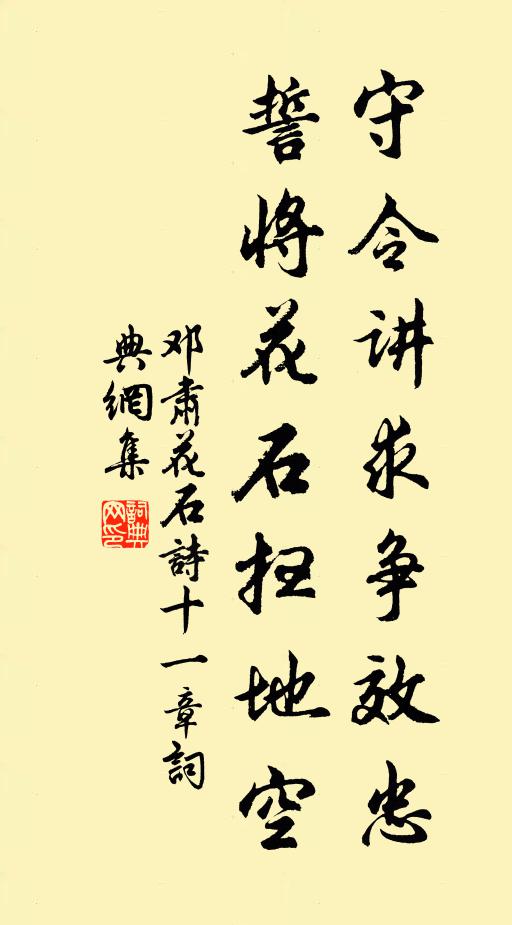 守令讲求争效忠
誓将花石扫地空
邓肃花石詩十一章詞
典網集
詞典网印